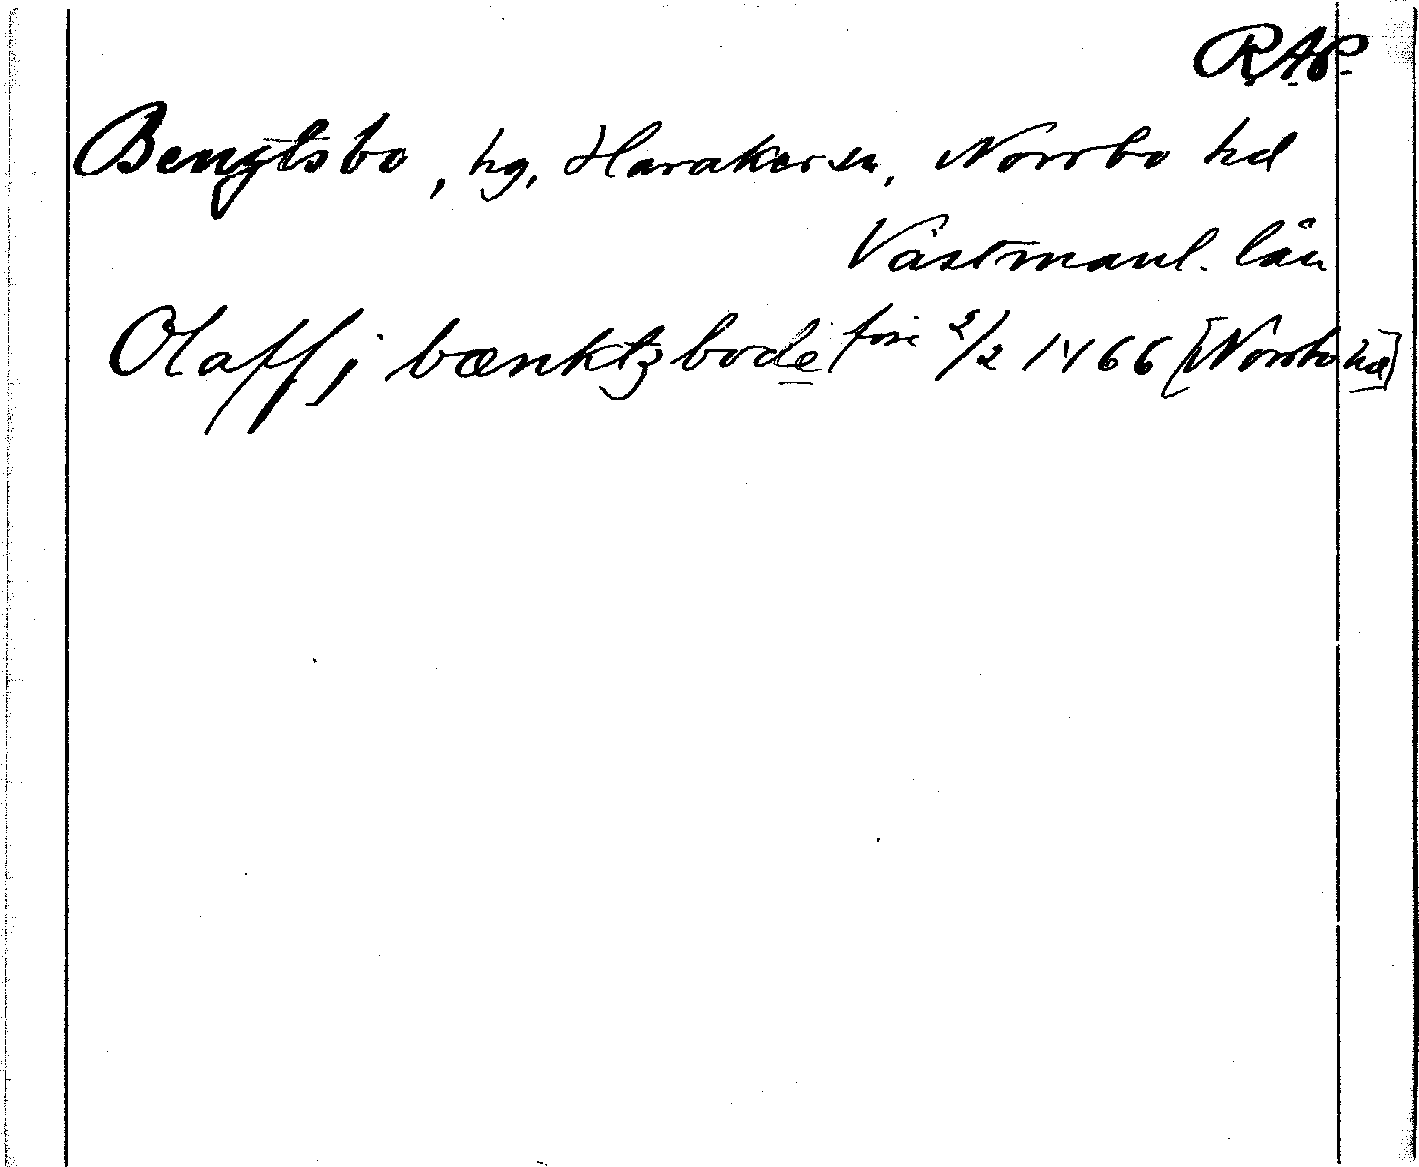 RAP
Bengtsbo, hg, Haraker sn, Norrbo hd
Västmanl. län
Olaff j bænktzbode 2/2 1466 [Norrbo hd]